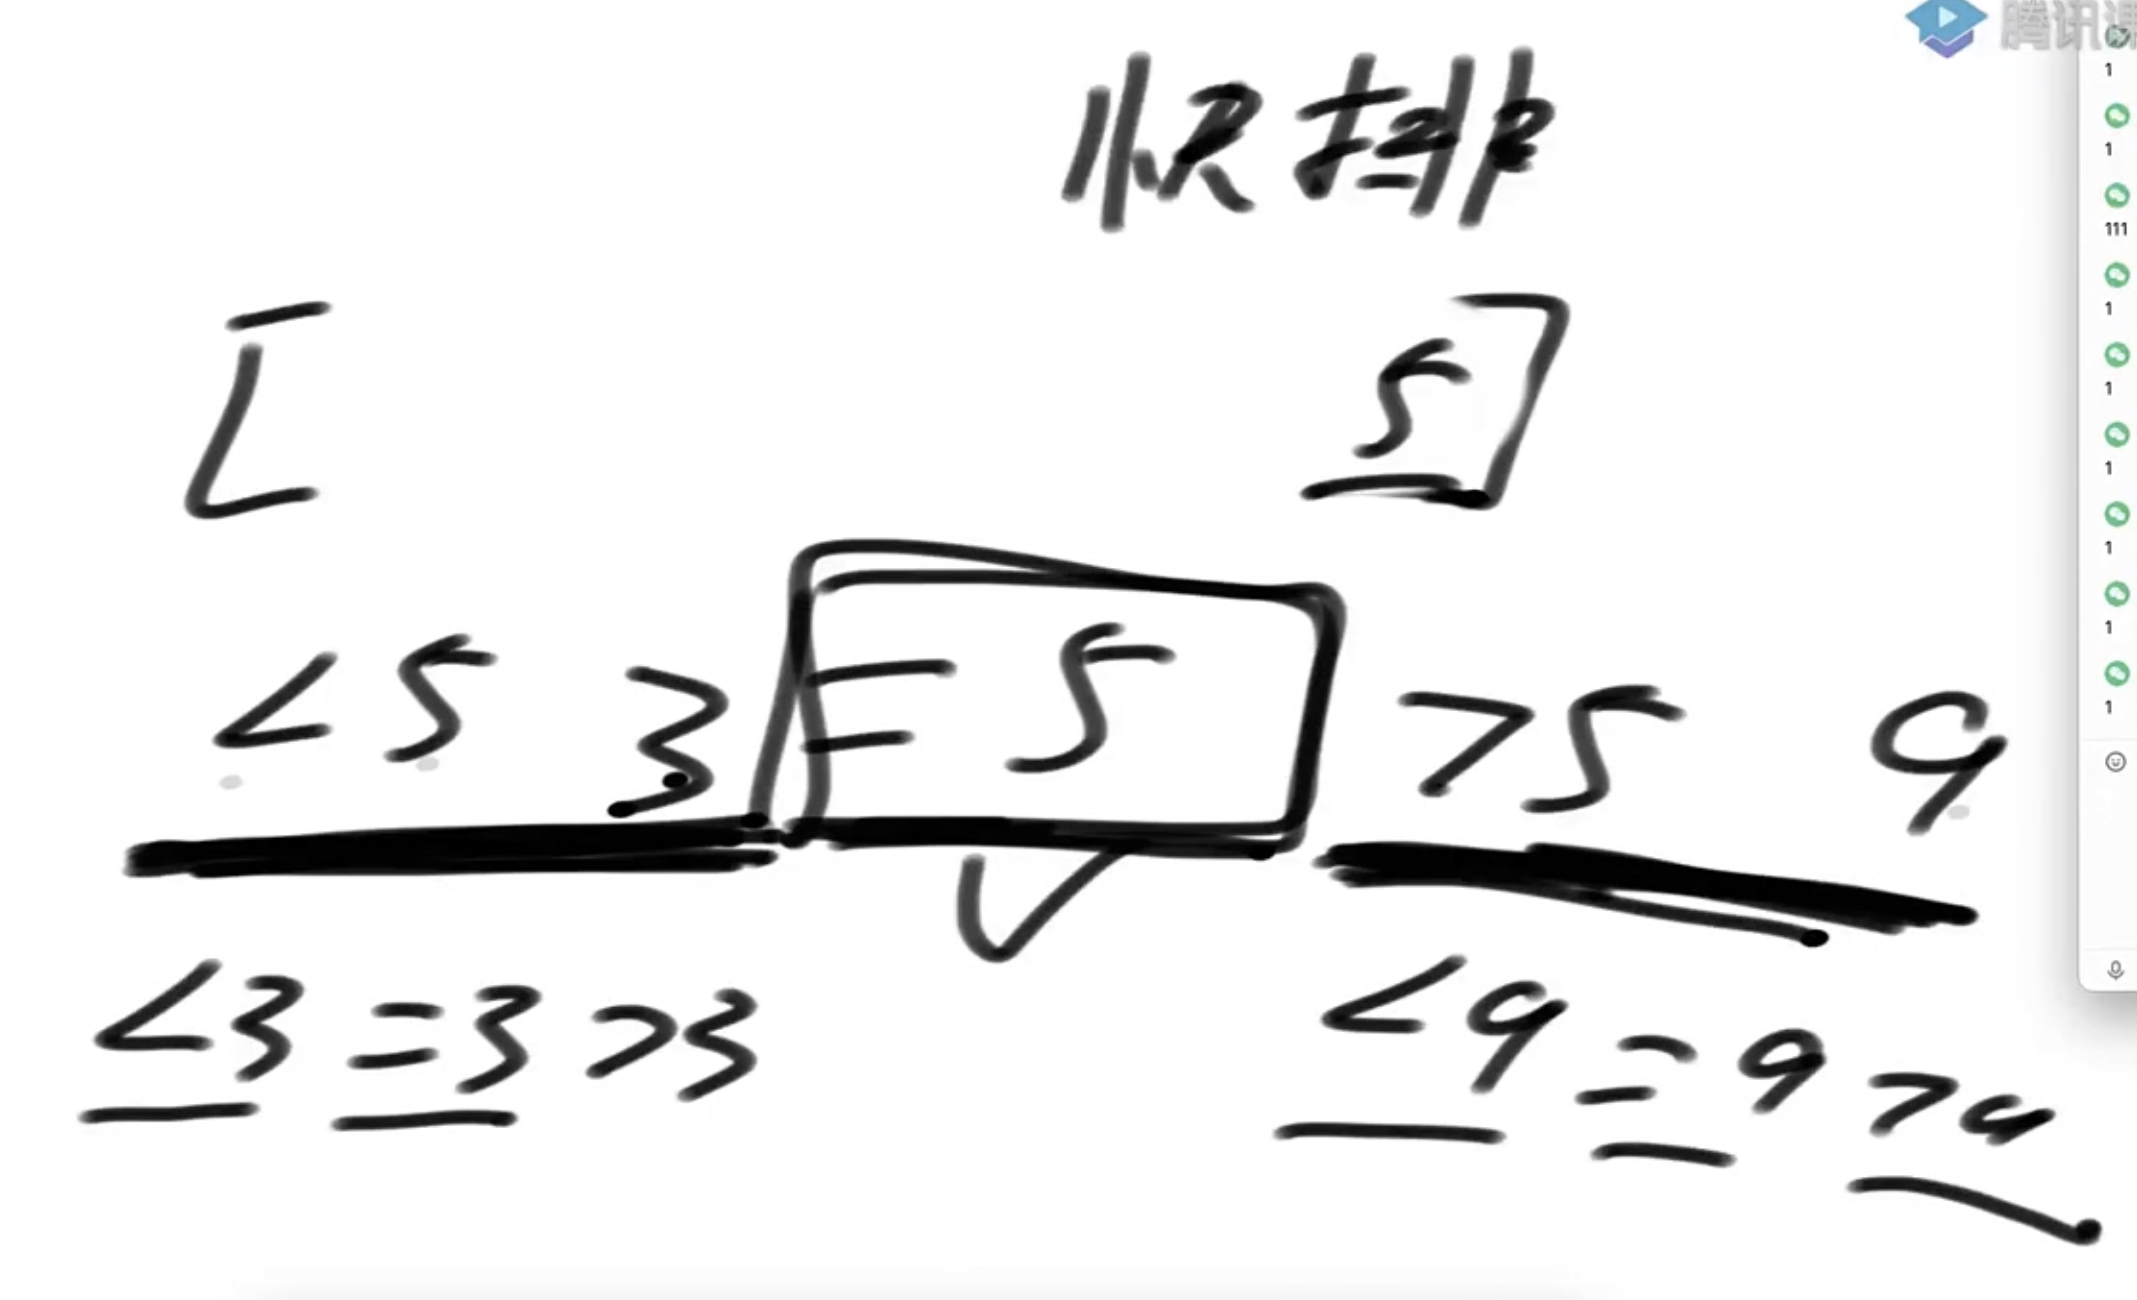 腾讯课
快排
[ 5]
<5 3 =5 >5 9
<3 =3 >3 <9 =9 >9
1
1
111
1
1
1
1
1
1